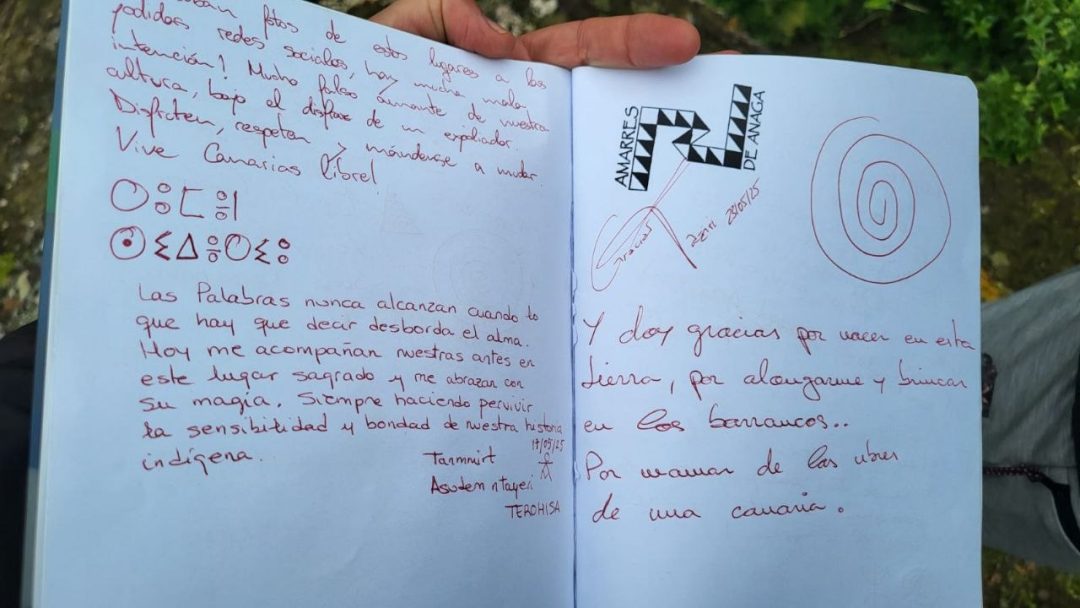 fotos de estos lugares a los
jodidos redes sociales, hay mucha mala
intención! Mucho falso amante de nuestra
altura, bajo el disfraz de un expoliador.
Disfruten, respeten y a mudar.
Vive Canarias libre!
ⵔⵓⵎ
Las Palabras nunca alcanzan cuando lo
que hay que decir desborda el alma.
Hoy me acompañan nuestras antes en
este lugar sagrado y me abrazan con
su magia. Siempre haciendo pervivir
la sensibilidad y bondad de nuestra historia
indígena.
17/05/25
Tanmmirt
Asudem n tayeri
TEROHISA
AMARRES
DE ANAGA
Gracias
23/05/25
Y doy gracias por nacer en esta
tierra, por alongarme y brincar
en los barrancos..
Por mamar de las ubres
de una canaria.